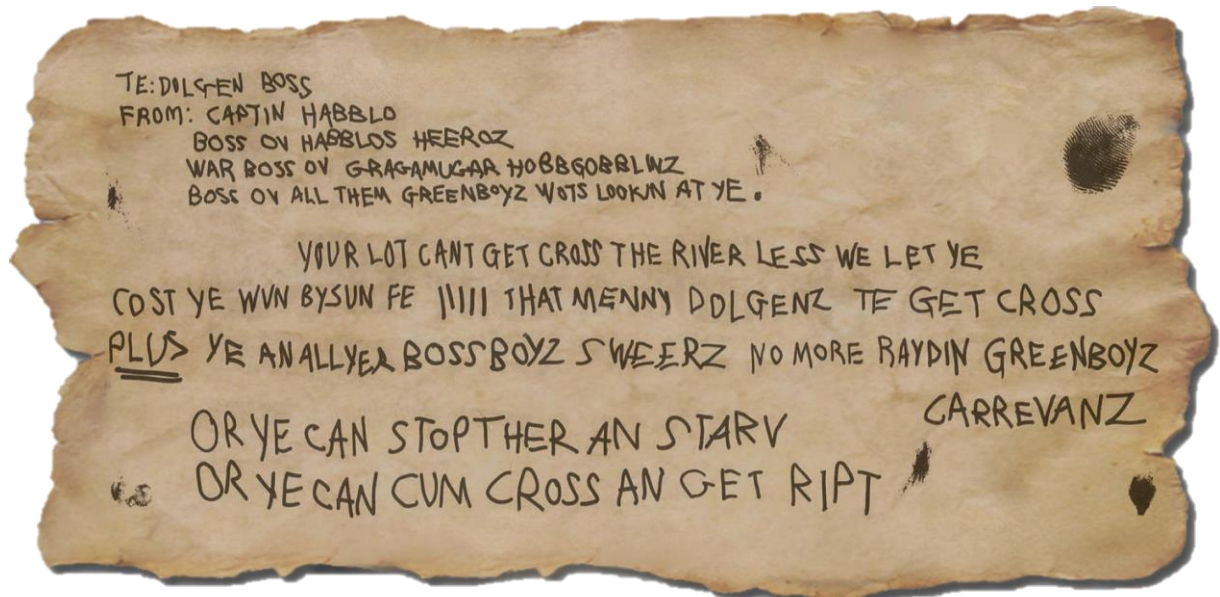 TE: DOLGEN BOSS
FROM: CAPTIN HABBLO
BOSS OV HABBLOS HEEROZ
WAR BOSS OV GRAGAMUGAR HOBBGOBBLINZ
BOSS OV ALL THEM GREENBOYZ WOTS LOOKIN AT YE.
YOUR LOT CANT GET CROSS THE RIVER LESS WE LET YE
COST YE WUN BYSUN FE ||||| THAT MENNY DOLGENZ TE GET CROSS
PLUS YE AN ALL YER BOSS BOYZ SWEERZ NO MORE RAYDIN GREENBOYZ
CARREVANZ
OR YE CAN STOP THER AN STARV
OR YE CAN CUM CROSS AN GET RIPT